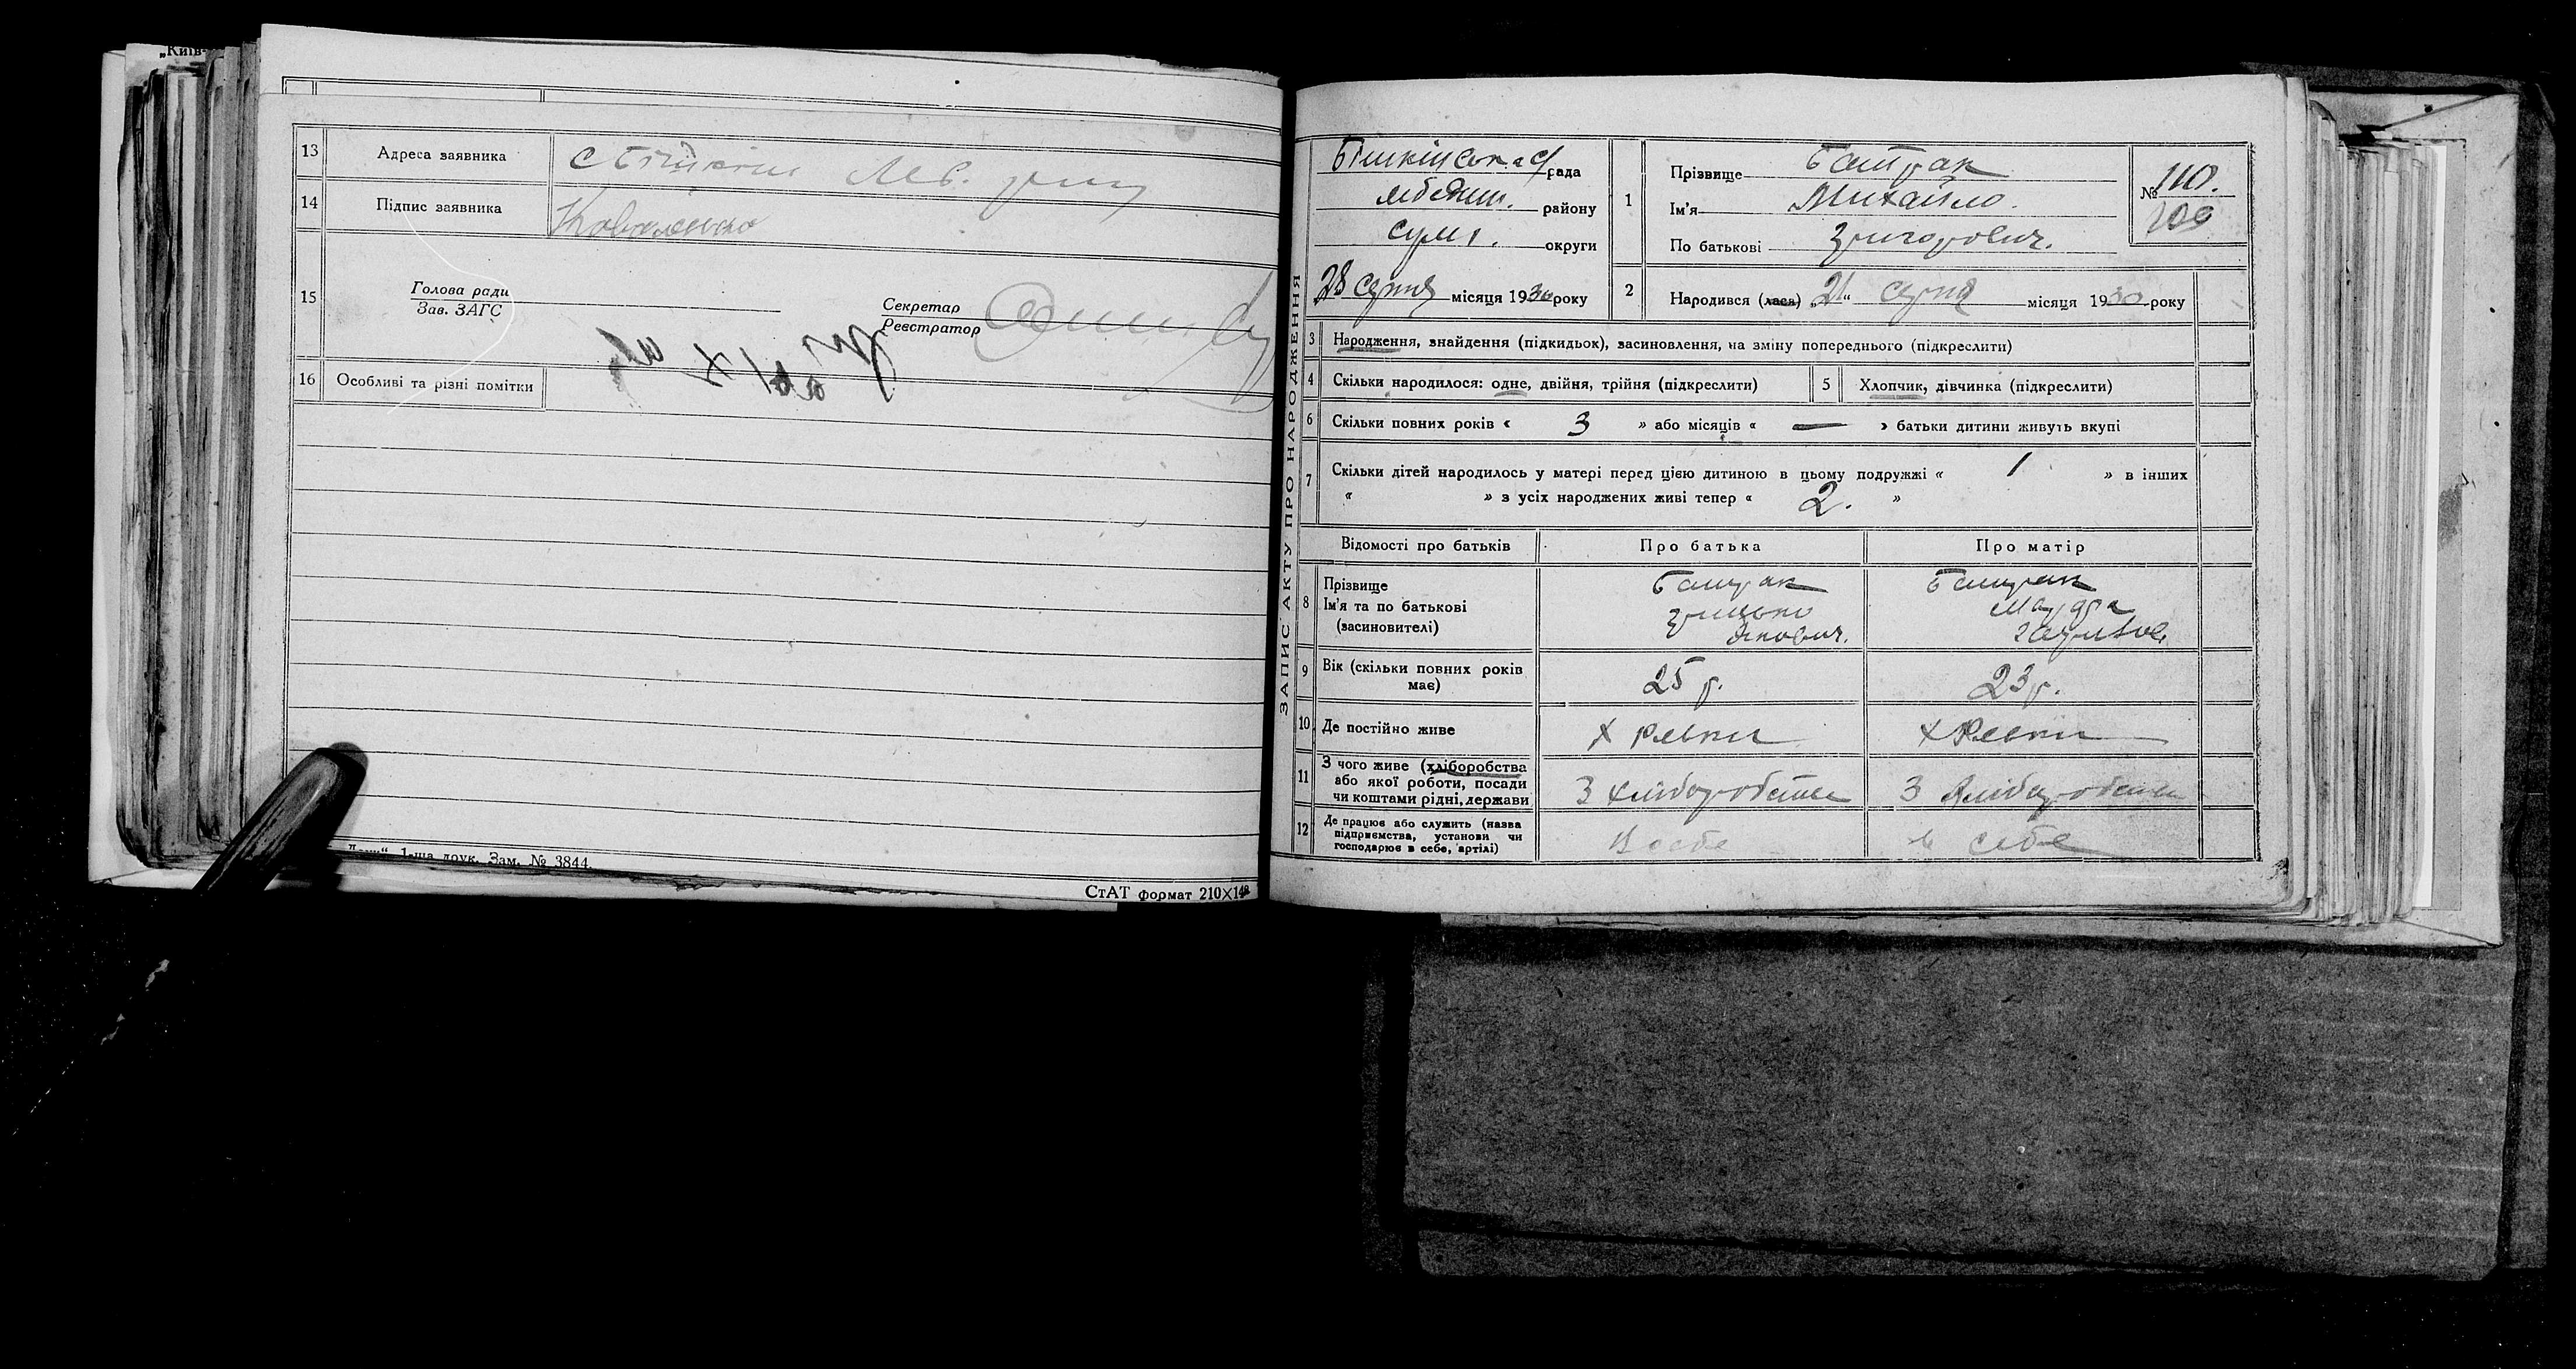 „Київ-
13 Адреса заявника с Бишкінь Леб. району
14 Підпис заявника Коваленко
15 Голова ради
Зав. ЗАГС
Секретар
Реєстратор
16 Особливі та різні помітки
1-ша друк. Зам. № 3844.
СтАТ формат 210×148
ЗАПИС АКТУ ПРО НАРОДЖЕННЯ
Бишкінська с/рада
Лебедин. району
Сумс. округи
28 серпня місяця 1930 року
1 Прізвище Батрак
Ім'я Михайло.
По батькові Григорович.
№ 110.
109
2 Народився (лася) „21“ серпня місяця 1930 року
3 Народження, знайдення (підкидьок), засиновлення, на зміну попереднього (підкреслити)
4 Скільки народилося: одне, двійня, трійня (підкреслити) 5 Хлопчик, дівчинка (підкреслити)
6 Скільки повних років « 3 » або місяців « — » батьки дитини живуть вкупі
7 Скільки дітей народилось у матері перед цією дитиною в цьому подружжі « 1 » в інших
« » з усіх народжених живі тепер « 2. »
Відомості про батьків Про батька Про матір
8 Прізвище Батрак Батрак
Ім'я та по батькові Грицько
(засиновителі)
9 Вік (скільки повних років 25 р. 23 р.
має)
10 Де постійно живе
11 З чого живе (хліборобства
або якої роботи, посади З хліборобства З хліборобства
чи коштами рідні, держави
12 Де працює або служить (назва
підприємства, установи чи В себе в себе
господарює в себе, артілі)